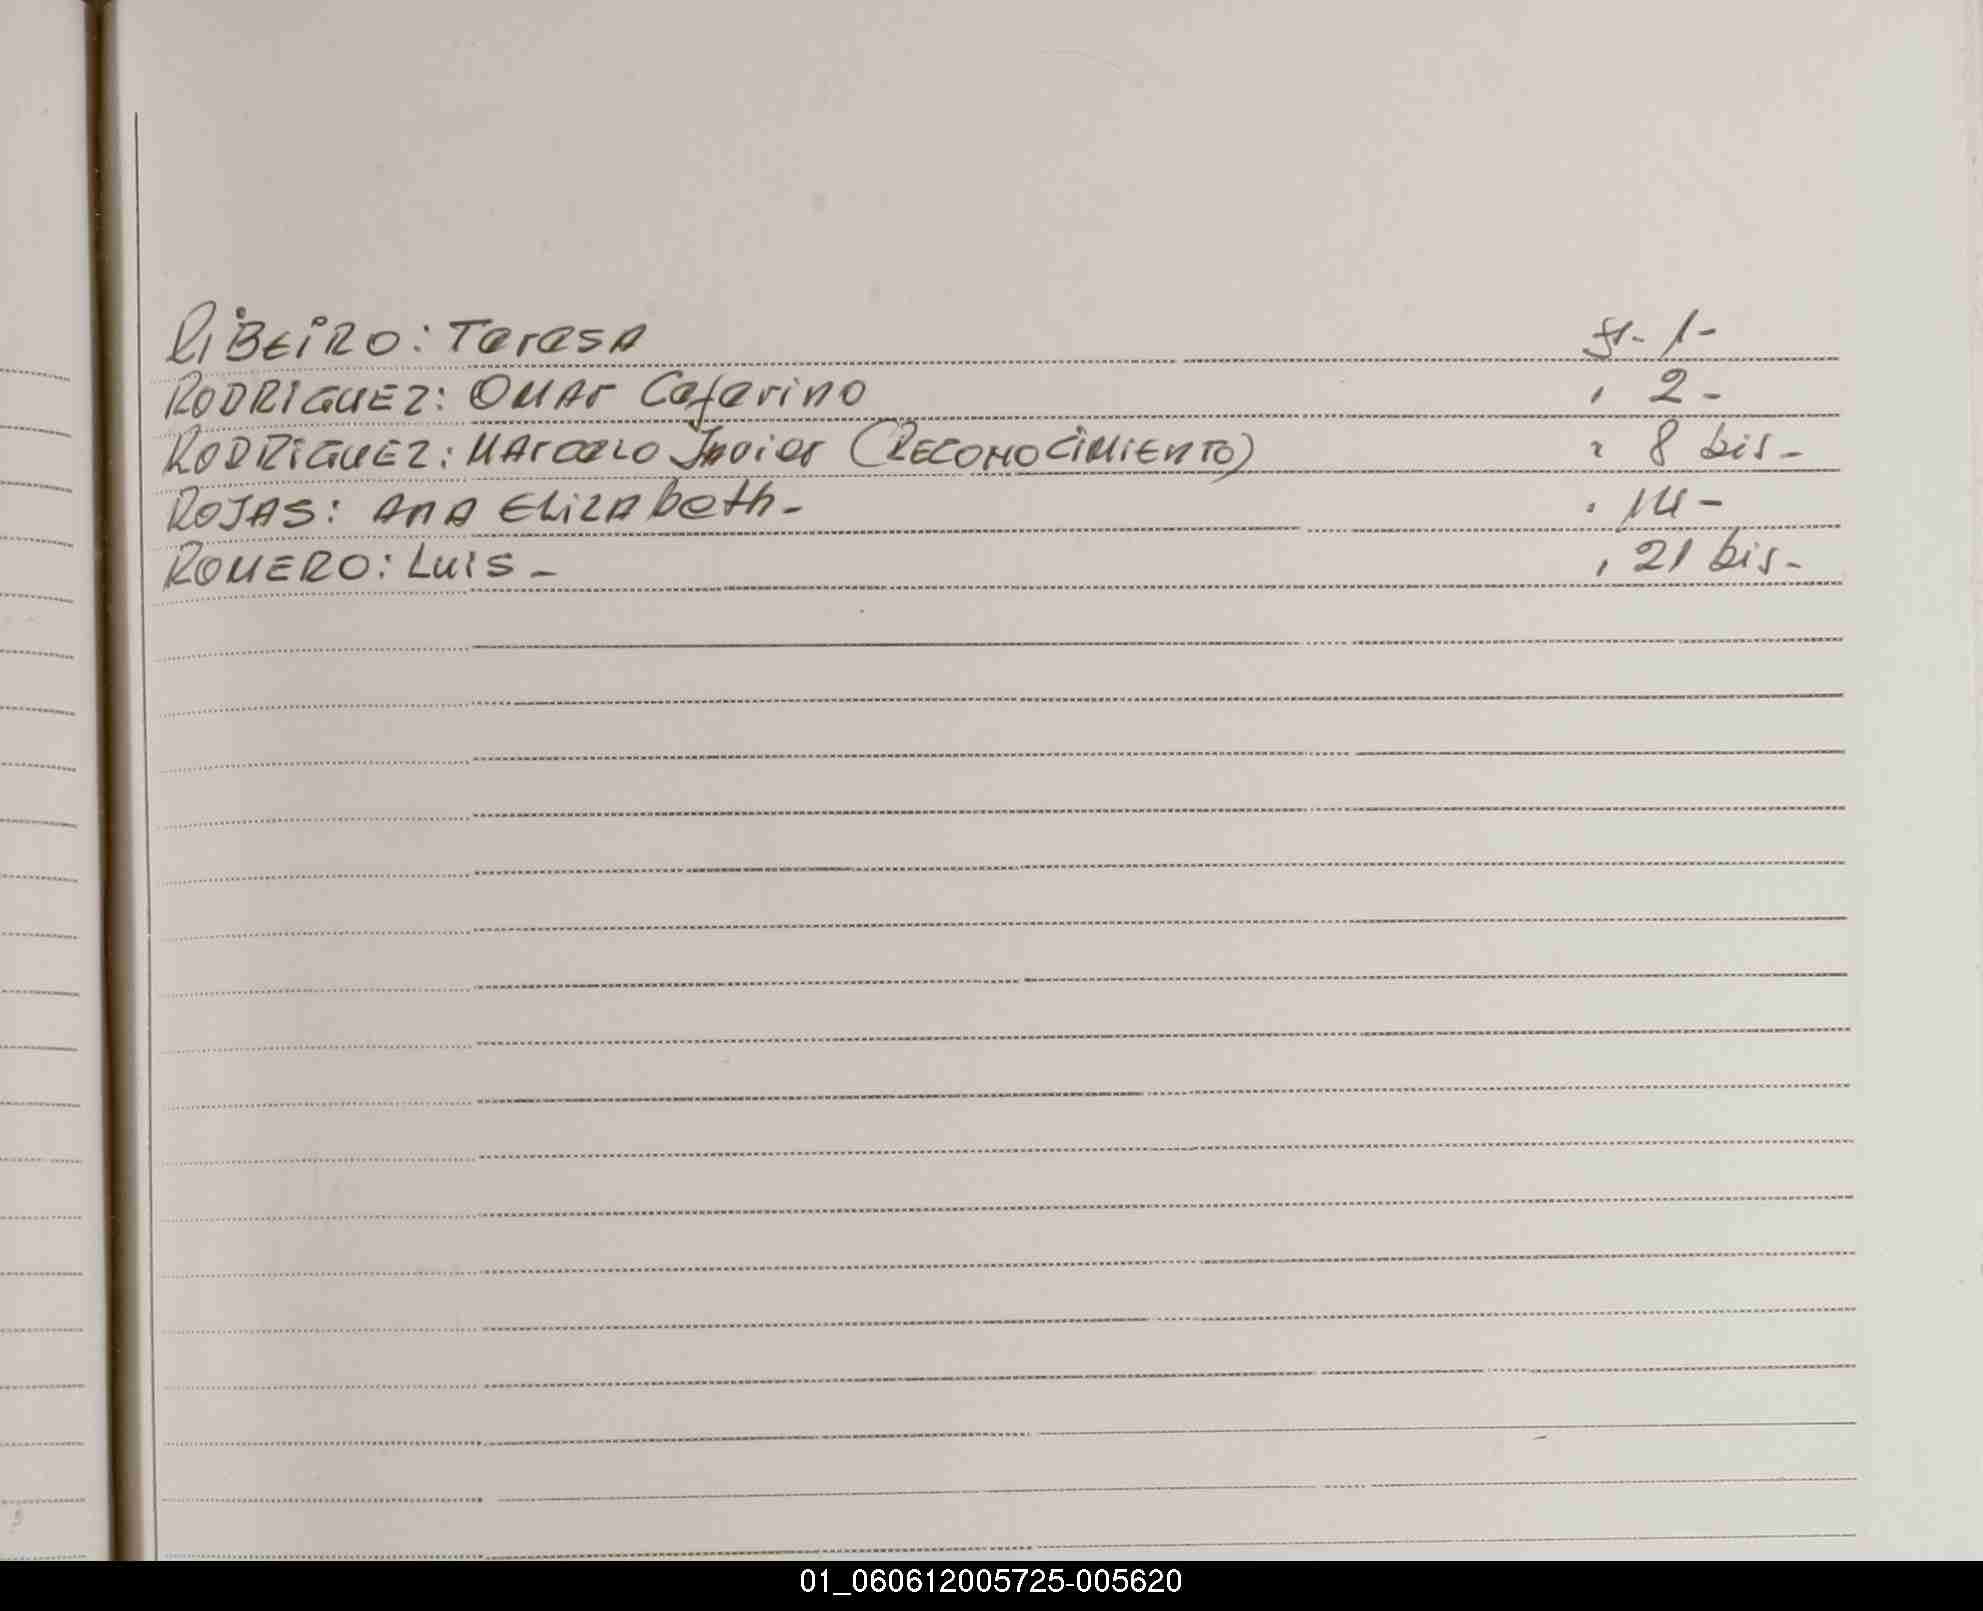 RIBEIRO: Teresa fs. 1-
RODRIGUEZ: OMAr Ceferino " 2-
RODRIGUEZ: MArceLo Javier (RECONOCIMIENTO) " 8 bis-
ROJAS: ANA ELizAbeth- " 14-
ROMERO: Luis- " 21 bis-
01_060612005725-005620